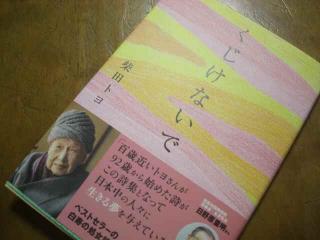 くじけないで
柴田トヨ
百歳近いトヨさんが
92歳から始めた詩が
この詩集となって
日本中の人々に
生きる夢を与えている
日野原重明
ベストセラーの